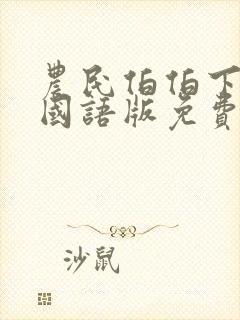 農民伯伯下
國語版免費
沙鼠